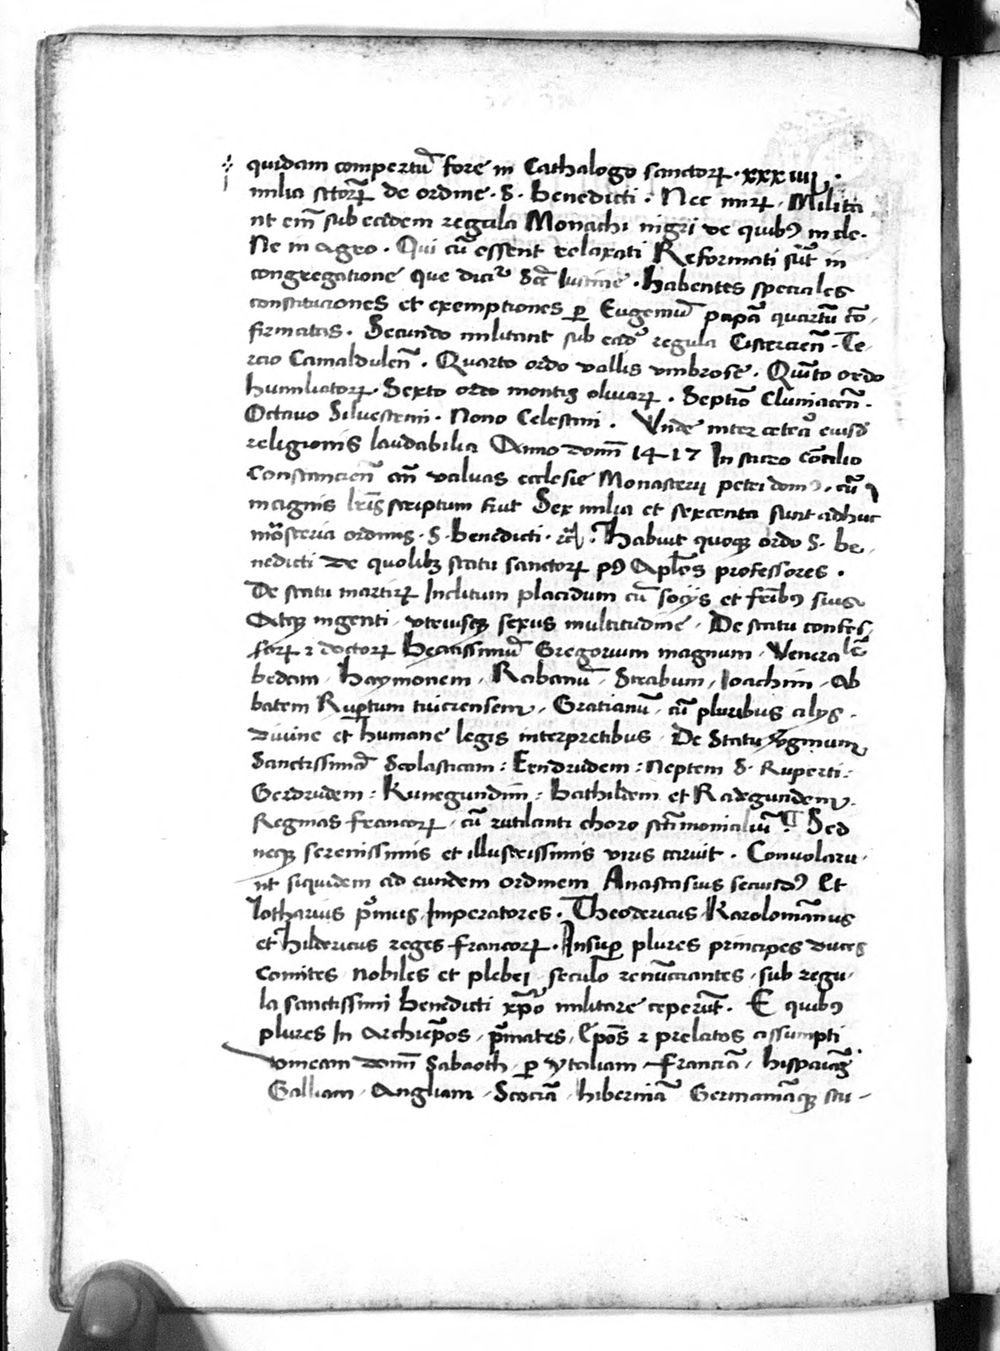 quidam compertū fore in Cathalogo sanctoꝝ · xxxiiij ·
milia sctoꝝ de ordine · S · benedicti · Nec miꝝ · Milita
nt em̄ sub eadem regula Monachi nigri de quibꝰ in de-
Ne in agro · Qui cū essent relaxati Reformati sūt in
congregatione que dicit᷑ Scē Iustine · habentes speciales
constituciones et exemptiones ꝑ Eugeniū papā quartū cō-
firmatas · Secundo militant sub eadē regula Cistercien̄ · Te-
rcio Camaldulen̄ · Quarto ordo vallis umbrose · Quīto ordo
humiliatoꝝ · Sexto ordo montis olivaꝝ · Septīo Cluniacen̄ ·
Octavo Silvestrini · Nono Celestini · Unde inter cetera eiusdē
religionis laudabilia Anno domī 1417 In sacro cōcilio
Constancien̄ an̄ valvas ecclesie Monasterij petri dom̄ · cū
magnis lrīs scriptum fuit Sex milia et sexcenta sunt adhuc
mōsteria ordinis · S · benedicti · rc̄ · Habuit quoqꝫ ordo S · be-
nedicti de quolibꝫ statu sanctoꝝ pꝰ Aplōs professores ·
De statu martiꝝ Inclitum placidum cū socijs et frībꝰ suis
Atqꝫ ingenti utriusqꝫ sexus multitudine · De statu confes-
soꝝ ⁊ doctoꝝ Beatissimū Gregorium magnum · Venerabilē
bedam · Haymonem · Rabanū · Strabum · Ioachim · Ab
batem Ruptum tuiciensem · Gratianū · cū pluribus alijs ·
divine et humane legis interpretibus · De Statu v̄ginum
Sanctissimā Scolasticam : Erndrudem : Neptem S · Ruperti :
Gerdrudem : Kunegundim : Bathildem et Radegundem ·
Reginas francoꝝ · cū rutilanti choro sctīmonialiū ¶ Sed
neqꝫ serenissimis et illustrissimis viris caruit · Convolaru-
nt siquidem ad eundem ordinem Anastasius secundꝰ Et
lotharius pⁱmus Imperatores · Theodericus Karolomānus
et Hildericus reges francoꝝ · Insuꝑ plures principes duces
Comites nobiles et plebei seculo renūcciantes sub regu-
la sanctissimi benedicti xp̄o militare ceperūt · E quibꝰ
plures In archiep̄os · pⁱmates · Ep̄os ⁊ prelatos assumpti
vineam domī Sabaoth · ꝑ ytaliam Franciā · hispaniā
Galliam · Angliam · Scociā · hiberniā Germaniāqꝫ stu-